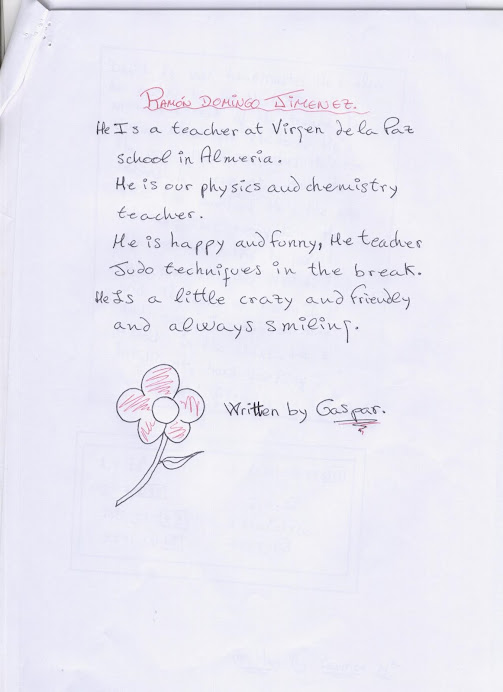 RAMÓN DOMINGO JIMENEZ.
He Is a teacher at Virgen de la Paz
school in Almeria.
He is our physics and chemistry
teacher.
He is happy and funny, He teacher
Judo techniques in the break.
He Is a little crazy and friendly
and always smiling.
Written by Gaspar.